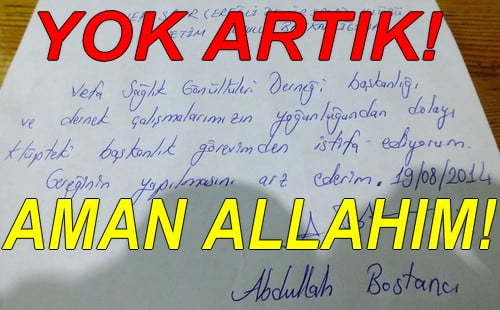 YOK ARTIK!
Vefa Sağlık Gönüllüleri Derneği başkanlığı
ve dernek çalışmalarımızın yoğunluğundan dolayı
klüpteki başkanlık görevimden istifa ediyorum.
Gereğinin yapılmasını arz ederim. 19/08/2014
AMAN ALLAHIM!
Abdullah Bostancı